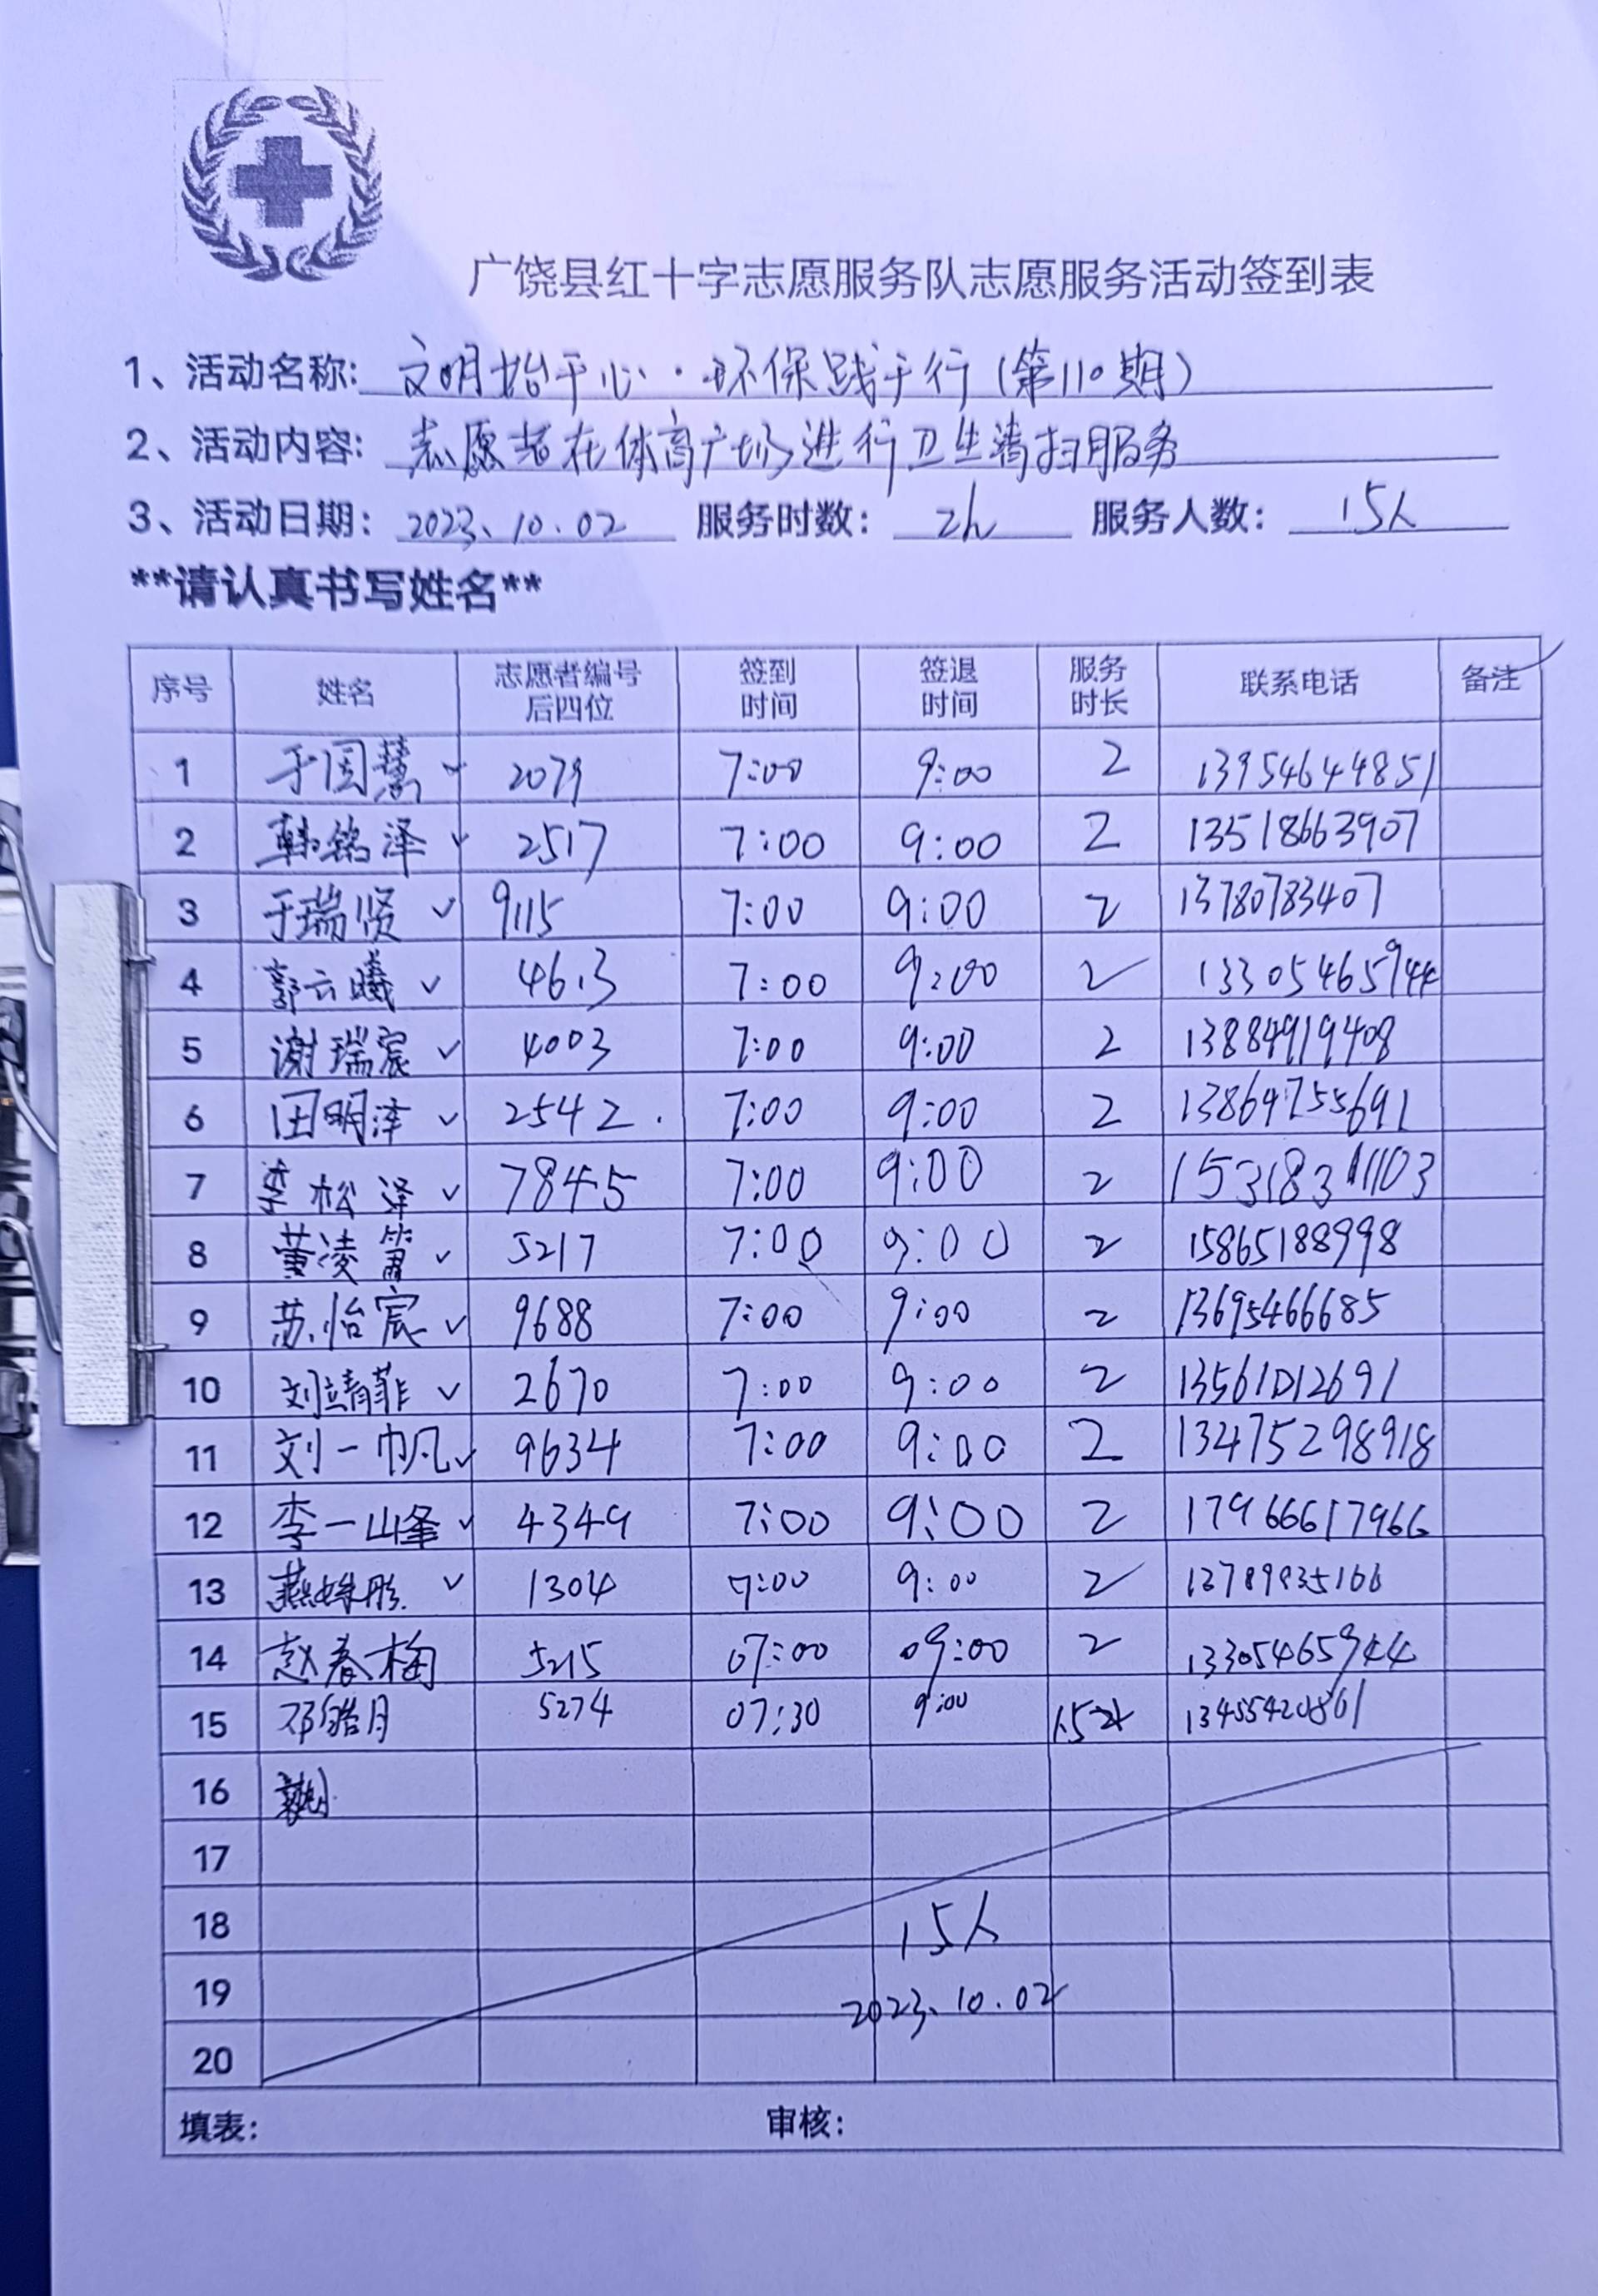 广饶县红十字志愿服务队志愿服务活动签到表
1、活动名称: 文明始于心·环保践于行(第110期)
2、活动内容: 志愿者在体育广场进行卫生清扫服务
3、活动日期: 2023、10.02 服务时数: 2h 服务人数: 15人
**请认真书写姓名**
序号 姓名 志愿者编号后四位 签到时间 签退时间 服务时长 联系电话 备注
1 于国慧 ✓ 2079 7:00 9:00 2 13954644851
2 韩铭泽 ✓ 2517 7:00 9:00 2 13518663907
3 于瑞贤 ✓ 9115 7:00 9:00 2 13780783407
4 郭云曦 ✓ 4613 7:00 9:00 2 13305465944
5 谢瑞宸 ✓ 4003 7:00 9:00 2 13884919408
6 田明泽 ✓ 2542 7:00 9:00 2 13864755691
7 李松泽 ✓ 7845 7:00 9:00 2
8 董凌霄 ✓ 5217 7:00 9:00 2 15865188998
9 苏怡宸 ✓ 9688 7:00 9:00 2 13695466685
10 刘靖菲 ✓ 2670 7:00 9:00 2 13561012691
11 刘一帆 ✓ 9634 7:00 9:00 2 13475298918
12 李一峰 ✓ 4349 7:00 9:00 2 17966617966
13 燕姝彤 ✓ 1304 7:00 9:00 2
14 赵春梅 5215 07:00 09:00 2 13305465944
15 邓皓月 5274 07:30 9:00 1.5 13455420861
16
17
18 15人
19 2023、10.02
20
填表: 审核: